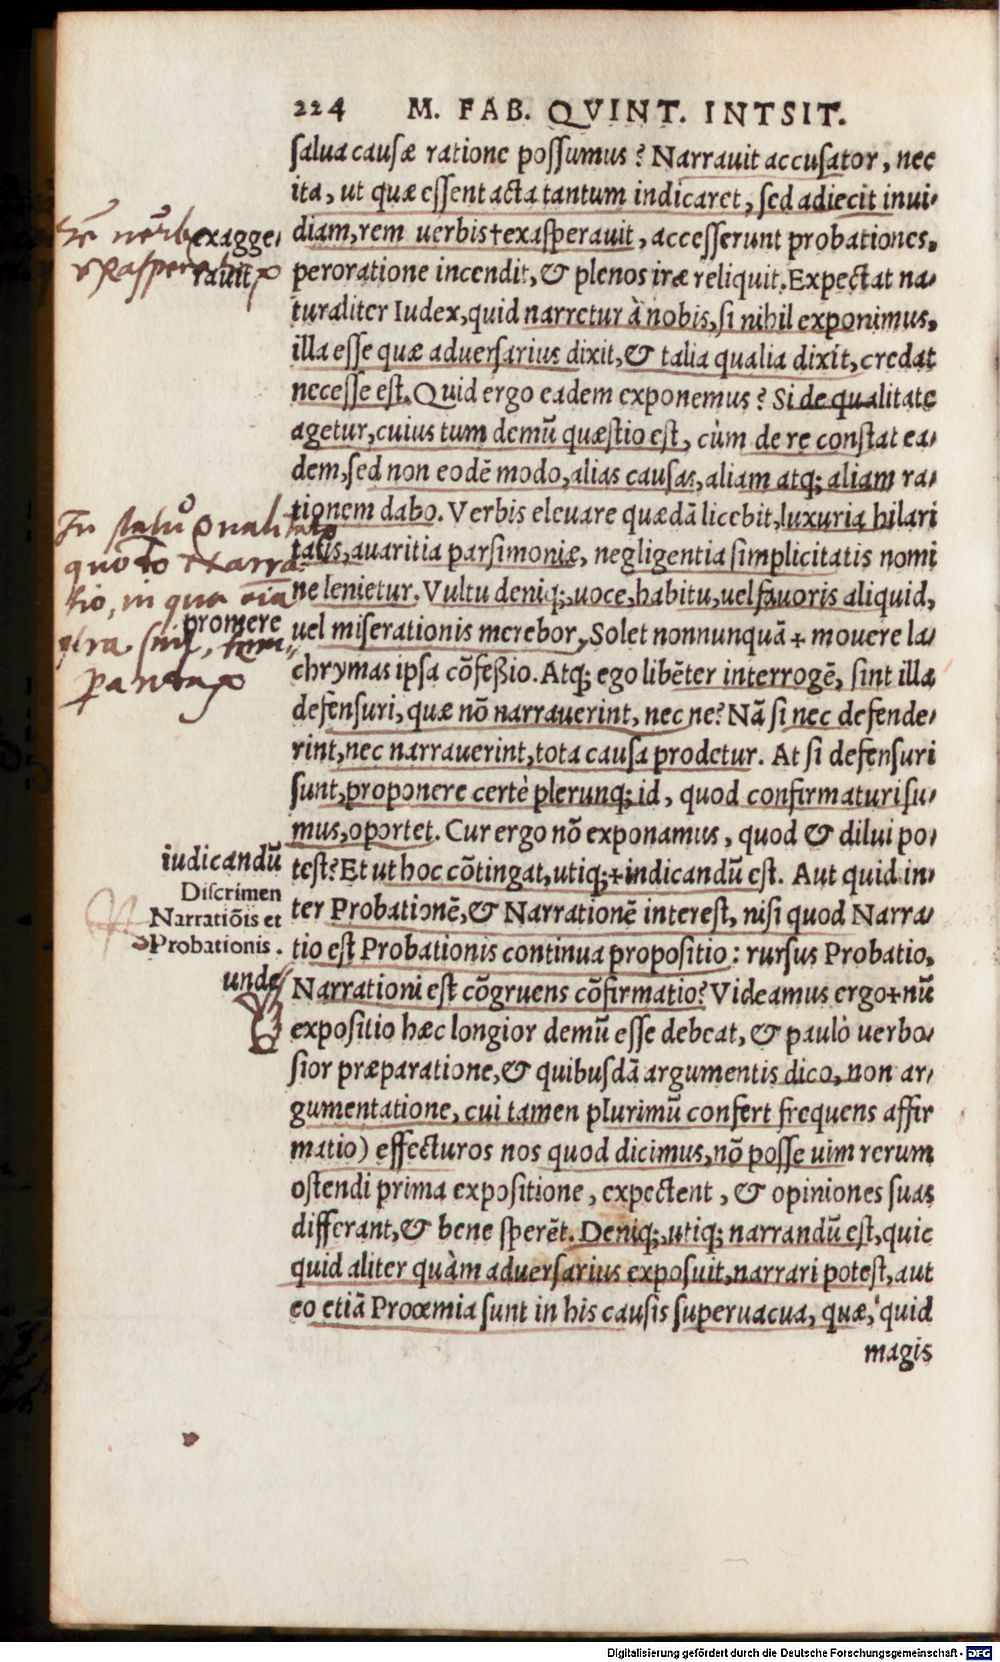 224 M. FAB. QVINT. INTSIT.
salua causæ ratione possumus? Narrauit accusator, nec
ita, ut quæ essent acta tantum indicaret, sed adiecit inui-
diam, rem uerbis†exasperauit, accesserunt probationes,
exagge-
rauit
peroratione incendit, & plenos iræ reliquit. Expectat na-
turaliter Iudex, quid narretur à nobis, si nihil exponimus,
illa esse quæ aduersarius dixit, & talia qualia dixit, credat
necesse est. Quid ergo eadem exponemus? Si de qualitate
agetur, cuius tum demū quæstio est, cùm de re constat ea-
dem, sed non eodē modo, alias causas, aliam atq; aliam ra-
tionem dabo. Verbis eleuare quædā licebit, luxuria hilari
tatis, auaritia parsimoniæ, negligentia simplicitatis nomi
ne lenietur. Vultu deniq;, uoce, habitu, uel fauoris aliquid,
promere
uel miserationis merebor, Solet nonnunquā + mouere la-
chrymas ipsa cōfeßio. Atq; ego libēter interrogē, sint illa
defensuri, quæ nō narrauerint, nec ne? Nā si nec defende-
rint, nec narrauerint, tota causa prodetur. At si defensuri
sunt, proponere certè plerunq; id, quod confirmaturi su-
mus, oportet. Cur ergo nō exponamus, quod & dilui po-
iudicandū
test? Et ut hoc cōtingat, utiq;+indicandū est. Aut quid in-
Discrimen
Narratiōis et
Probationis.
ter Probationē, & Narrationē interest, nisi quod Narra-
tio est Probationis continua propositio: rursus Probatio,
unde
Narrationi est cōgruens cōfirmatio? Videamus ergo+nū
expositio hæc longior demū esse debeat, & paulò uerbo-
sior præparatione, & quibusdā argumentis dico, non ar-
gumentatione, cui tamen plurimū confert frequens affir
matio) effecturos nos quod dicimus, nō posse uim rerum
ostendi prima expositione, expectent, & opiniones suas
differant, & bene sperēt. Deniq;, utiq; narrandū est, quic
quid aliter quàm aduersarius exposuit, narrari potest, aut
eo etiā Proœmia sunt in his causis superuacua, quæ, quid
magis
Digitalisierung gefördert durch die Deutsche Forschungsgemeinschaft - DFG